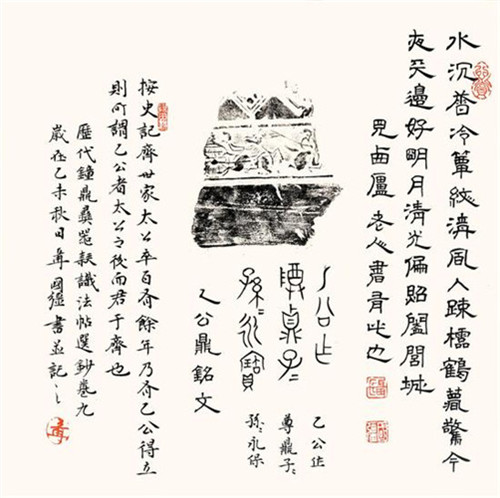 水沉香冷簟紋清風入疎櫺鶴夢驚今
夜天邊好明月清光偏照闔閭城
見卤廬老人書有此也
乙公作
尊鼎子=
孫=永寶
乙公鼎銘文
乙公作
尊鼎子=
孫=永保
按史記齊世家太公卒百有餘年乃有乙公得立
則所謂乙公者太公之後而君于齊也
歷代鐘鼎彝器款識法帖選鈔卷九
歲在乙未秋日國強書並記之